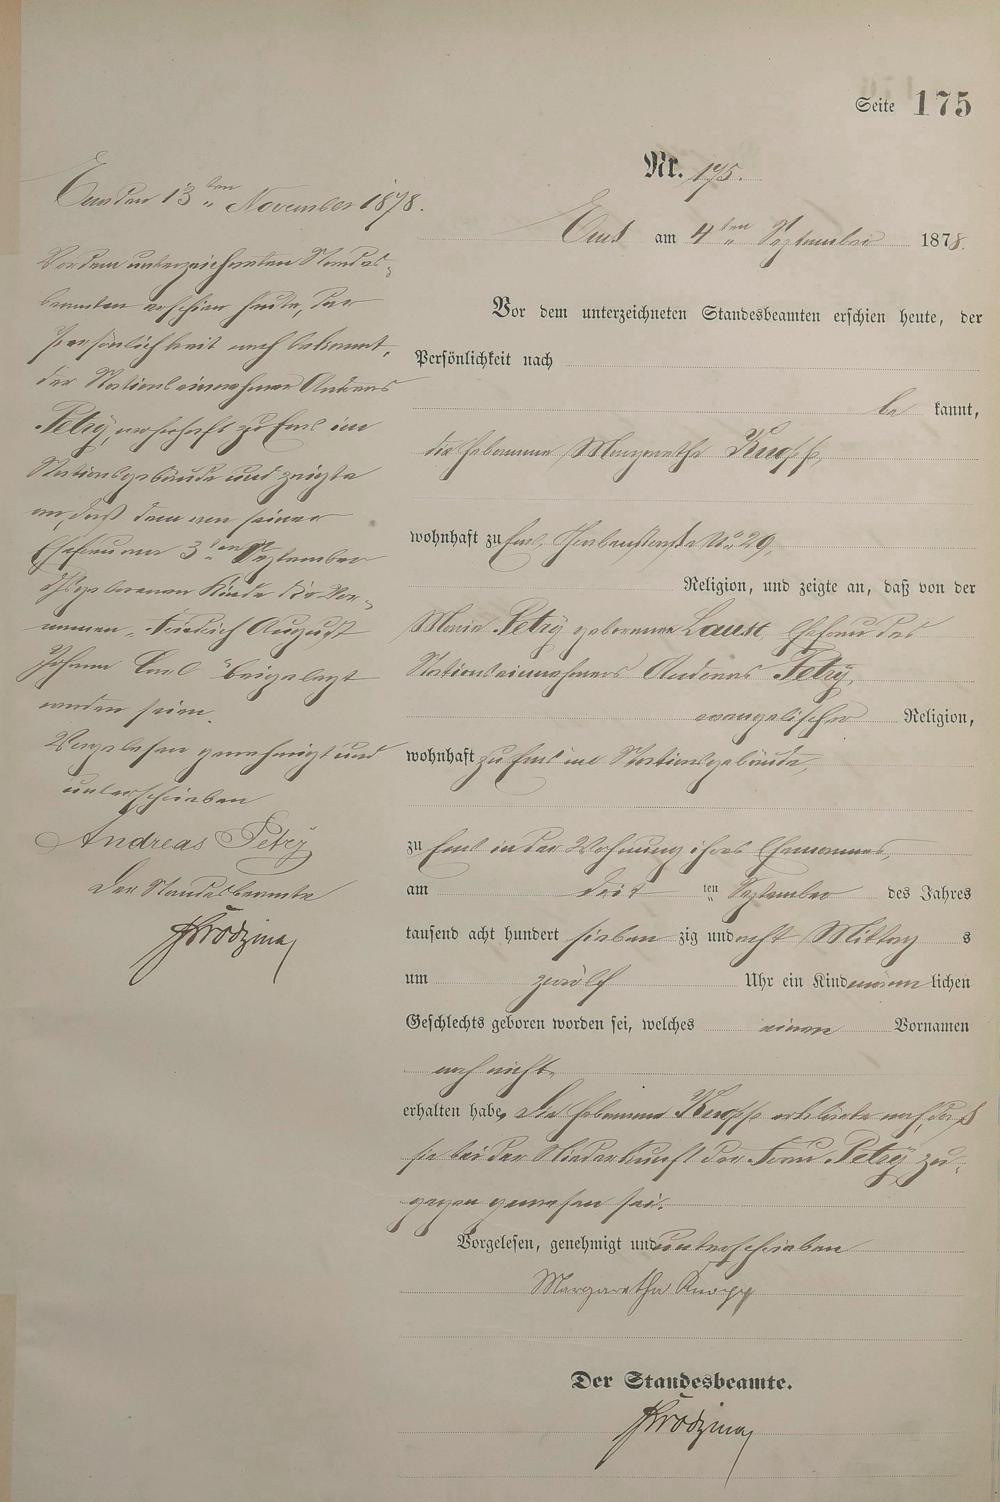 Seite 175
Nr. 175.
Ems am 4ten September 1878.
Vor dem unterzeichneten Standesbeamten erschien heute, der
Persönlichkeit nach
be kannt,
die Hebamme Margaretha Knopp,
wohnhaft zu Ems, No 29,
Religion, und zeigte an, daß von der
Marie Petry geborenen Laust, Ehefrau des
Stationseinnehmers Andreas Petry,
evangelischer Religion,
wohnhaft zu Ems im Stationsgebäude,
zu Ems in der Wohnung ihres Ehemannes,
am drit ten September des Jahres
tausend acht hundert sieben zig und acht Mittag s
um zwölf Uhr ein Kind männ lichen
Geschlechts geboren worden sei, welches einen Vornamen
noch nicht
erhalten habe, Die Hebamme Knopp erklärte noch, daß
sie bei der Niederkunft der Frau Petry zu-
gegen gewesen sei.
Vorgelesen, genehmigt und unterschrieben
Margaretha Knopp
Der Standesbeamte.
Ems den 13ten November 1878.
Vor dem unterzeichneten Standes-
beamten erschien heute, der
Persönlichkeit nach bekannt,
der Stationseinnehmer Andreas
Petry, wohnhaft zu Ems im
Stationsgebäude und zeigte
an, daß dem von seiner
Ehefrau am 3ten September
geborenen Kinde die Vor-
namen "Friedrich August
Johann Carl" beigelegt
worden seien.
Vorgelesen genehmigt und
unterschrieben
Andreas Petry
Der Standesbeamte